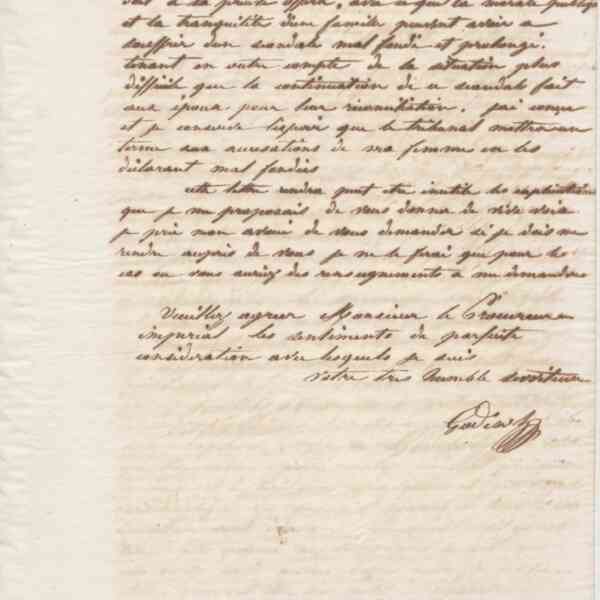 et la tranquilité d'une famille peuvent avoir a
souffrir d'un scandale mal fondé et prolongé.
tenant en outre compte de la situation plus
difficile que la continuation de ce scandale fait
aux époux pour leur réconciliation. j'ai conçu
et je conserve l'espoir que le tribunal mettra un
terme aux accusations de ma femme en les
déclarant mal fondées
cette lettre rendra peut etre inutile les explications
que je me proposais de vous donner de vive voix
je prie mon avoué de vous demander si je dois me
rendre auprès de vous je ne le ferai que pour le
cas ou vous auriez des renseignements a me demander
Veuillez agréer Monsieur le Procureur
impérial les sentiments de parfaite
considération avec lesquels je suis
votre très humble serviteur